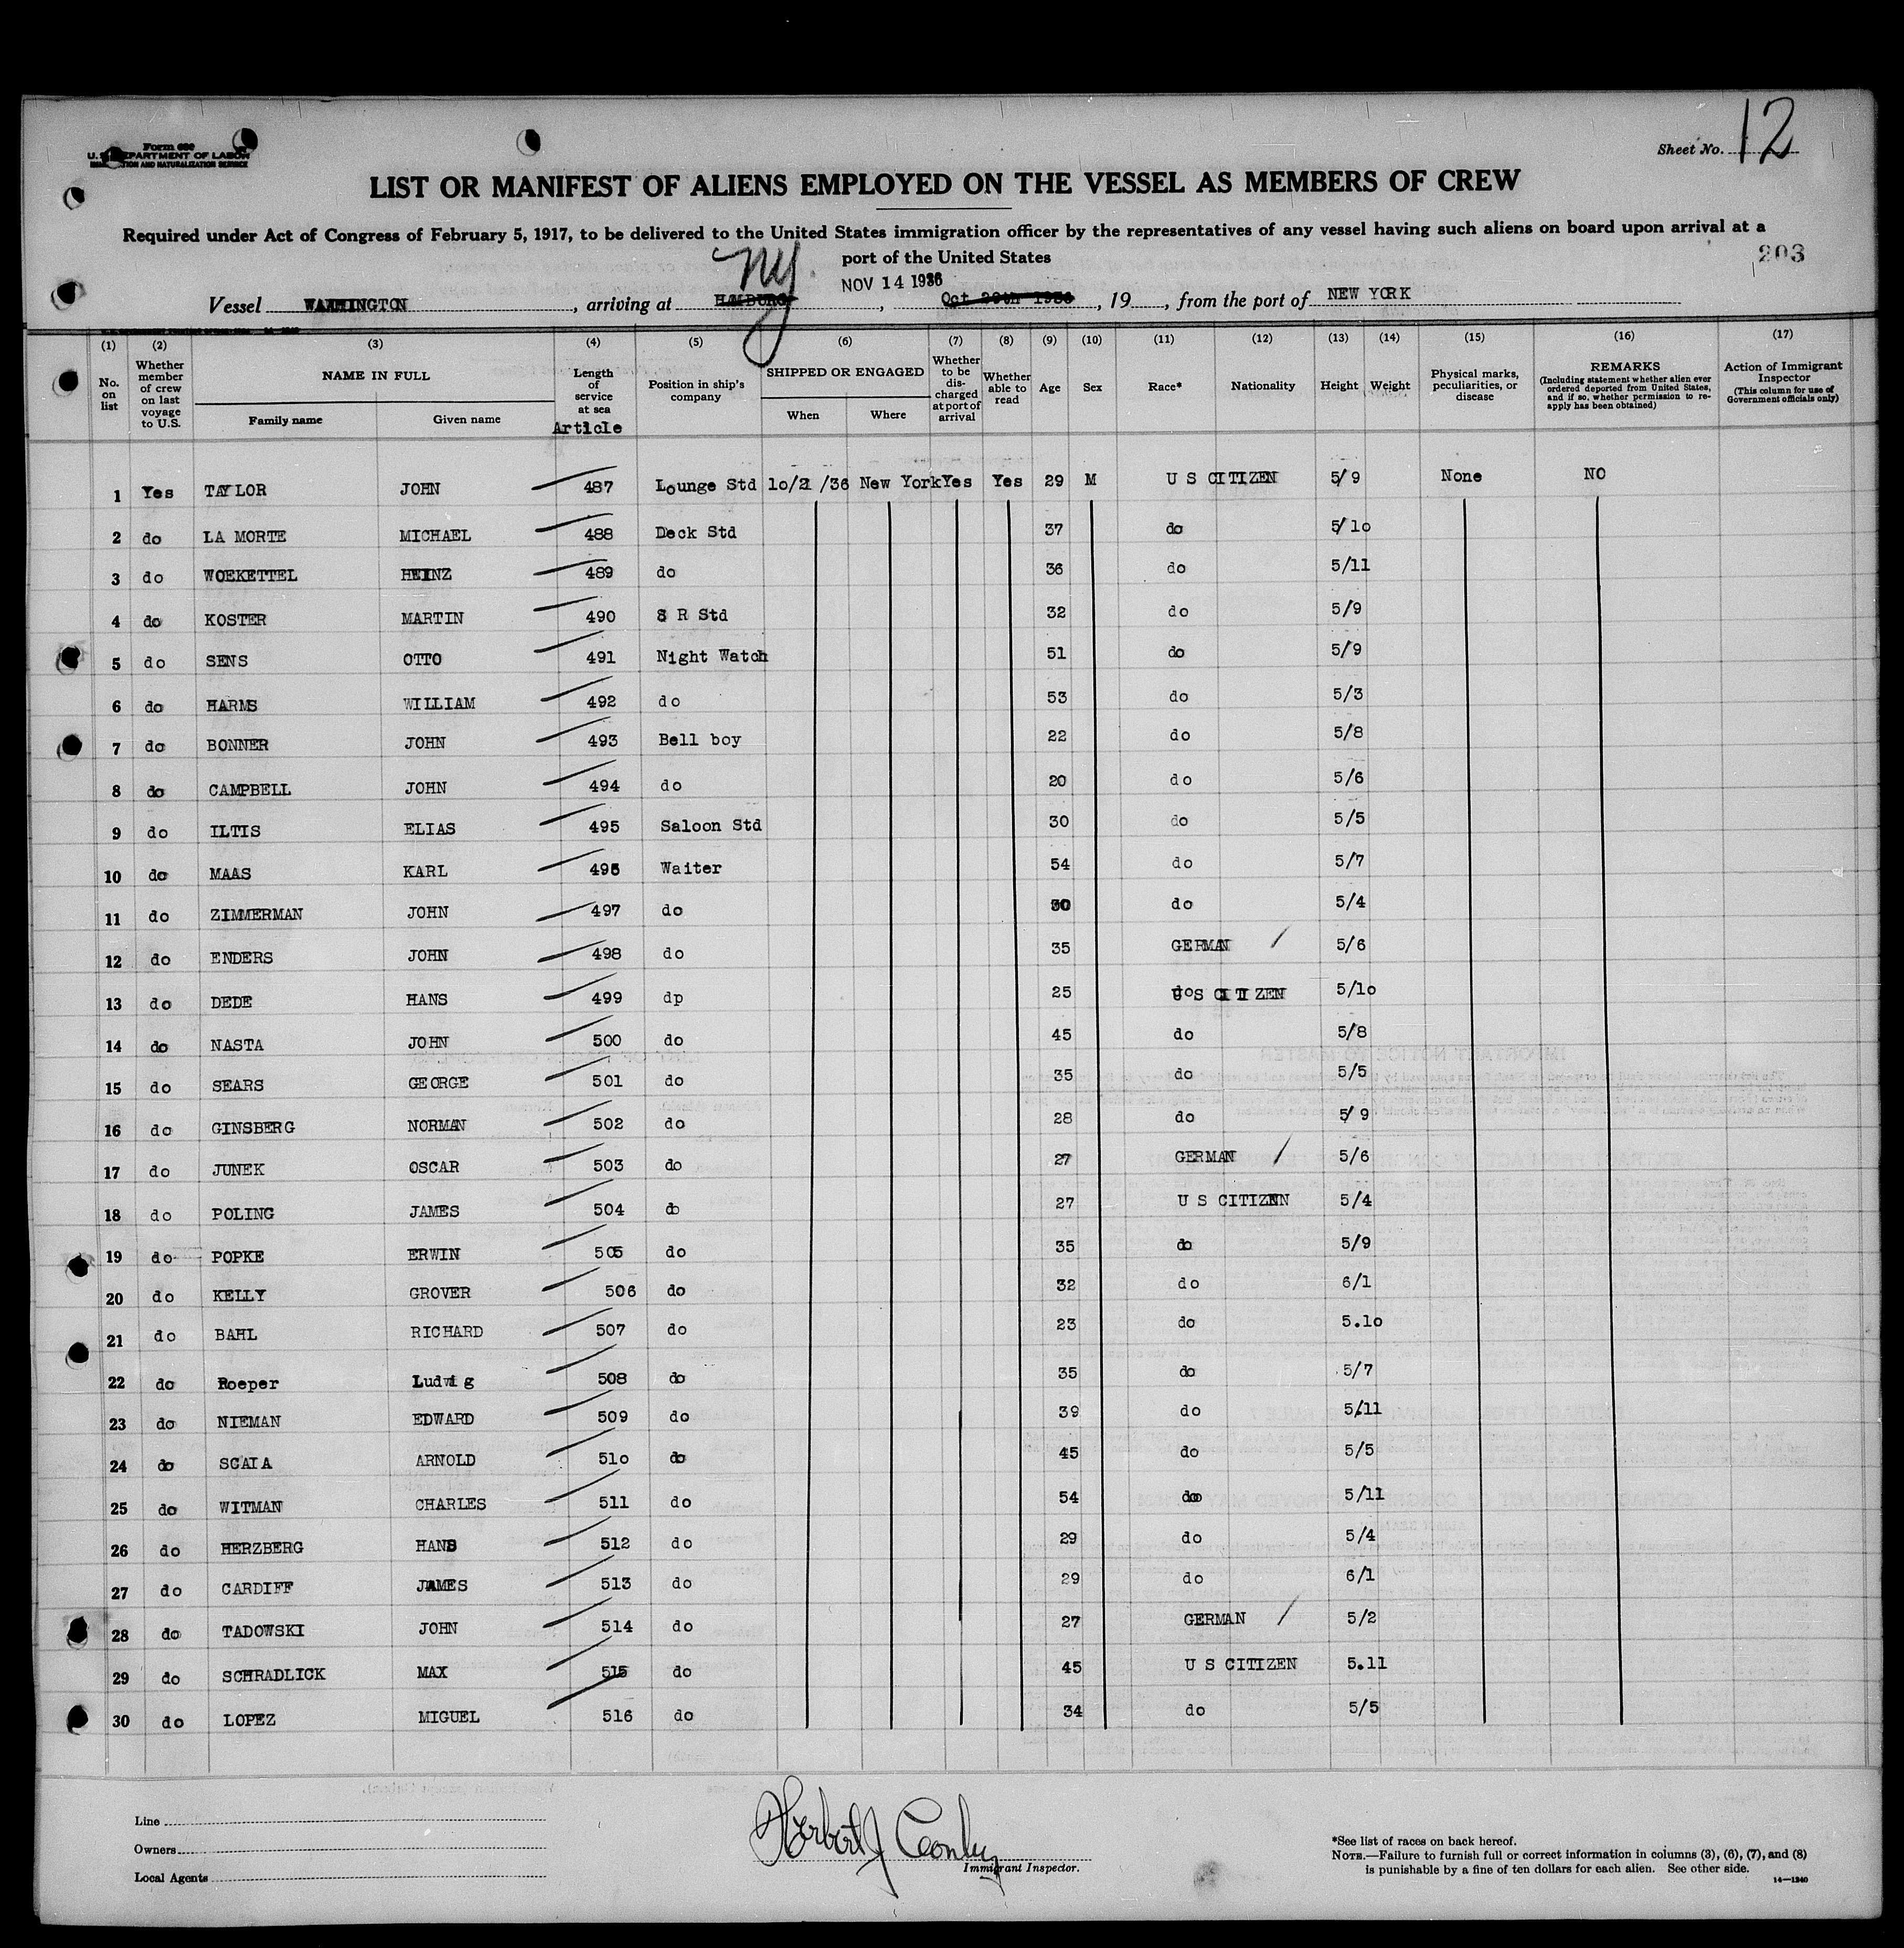 Form 680
U. S. DEPARTMENT OF LABOR
IMMIGRATION AND NATURALIZATION SERVICE
Sheet No. 12
LIST OR MANIFEST OF ALIENS EMPLOYED ON THE VESSEL AS MEMBERS OF CREW
Required under Act of Congress of February 5, 1917, to be delivered to the United States immigration officer by the representatives of any vessel having such aliens on board upon arrival at a
port of the United States
203
NY
NOV 14 1936
Vessel WASHINGTON, arriving at HAMBURG, Oct 29th 1936, 19, from the port of NEW YORK
(1) (2) (3) (4) (5) (6) (7) (8) (9) (10) (11) (12) (13) (14) (15) (16) (17)
No. on list
Whether member of crew on last voyage to U.S.
NAME IN FULL
Family name Given name
Length of service at sea
Article
Position in ship's company
SHIPPED OR ENGAGED
When Where
Whether to be discharged at port of arrival
Whether able to read
Age Sex Race* Nationality Height Weight
Physical marks, peculiarities, or disease
REMARKS
(Including statement whether alien ever ordered deported from United States, and if so, whether permission to reapply has been obtained)
Action of Immigrant Inspector
(This column for use of Government officials only)
1 Yes TAYLOR JOHN 487 Lounge Std 10/2 /36 New York Yes Yes 29 M U S CITIZEN 5/9 None NO
2 do LA MORTE MICHAEL 488 Deck Std 37 do 5/10
3 do WOEKETTEL HEINZ 489 do 36 do 5/11
4 do KOSTER MARTIN 490 S R Std 32 do 5/9
5 do SENS OTTO 491 Night Watch 51 do 5/9
6 do HARMS WILLIAM 492 do 53 do 5/3
7 do BONNER JOHN 493 Bell boy 22 do 5/8
8 do CAMPBELL JOHN 494 do 20 do 5/6
9 do ILTIS ELIAS 495 Saloon Std 30 do 5/5
10 do MAAS KARL 496 Waiter 54 do 5/7
11 do ZIMMERMAN JOHN 497 do 30 do 5/4
12 do ENDERS JOHN 498 do 35 GERMAN 5/6
13 do DEDE HANS 499 dp 25 U S CITIZEN 5/10
14 do NASTA JOHN 500 do 45 do 5/8
15 do SEARS GEORGE 501 do 35 do 5/5
16 do GINSBERG NORMAN 502 do 28 do 5/9
17 do JUNEK OSCAR 503 do 27 GERMAN 5/6
18 do POLING JAMES 504 do 27 U S CITIZEN 5/4
19 do POPKE ERWIN 505 do 35 do 5/9
20 do KELLY GROVER 506 do 32 do 6/1
21 do BAHL RICHARD 507 do 23 do 5.10
22 do Roeper Ludwig 508 do 35 do 5/7
23 do NIEMAN EDWARD 509 do 39 do 5/11
24 do SCAIA ARNOLD 510 do 45 do 5/5
25 do WITMAN CHARLES 511 do 54 do 5/11
26 do HERZBERG HANS 512 do 29 do 5/4
27 do CARDIFF JAMES 513 do 29 do 6/1
28 do TADOWSKI JOHN 514 do 27 GERMAN 5/2
29 do SCHRADLICK MAX 515 do 45 U S CITIZEN 5.11
30 do LOPEZ MIGUEL 516 do 34 do 5/5
Line
Owners
Local Agents
Herbert J Conley
Immigrant Inspector.
*See list of races on back hereof.
NOTE.—Failure to furnish full or correct information in columns (3), (6), (7), and (8)
is punishable by a fine of ten dollars for each alien. See other side.
14—1240